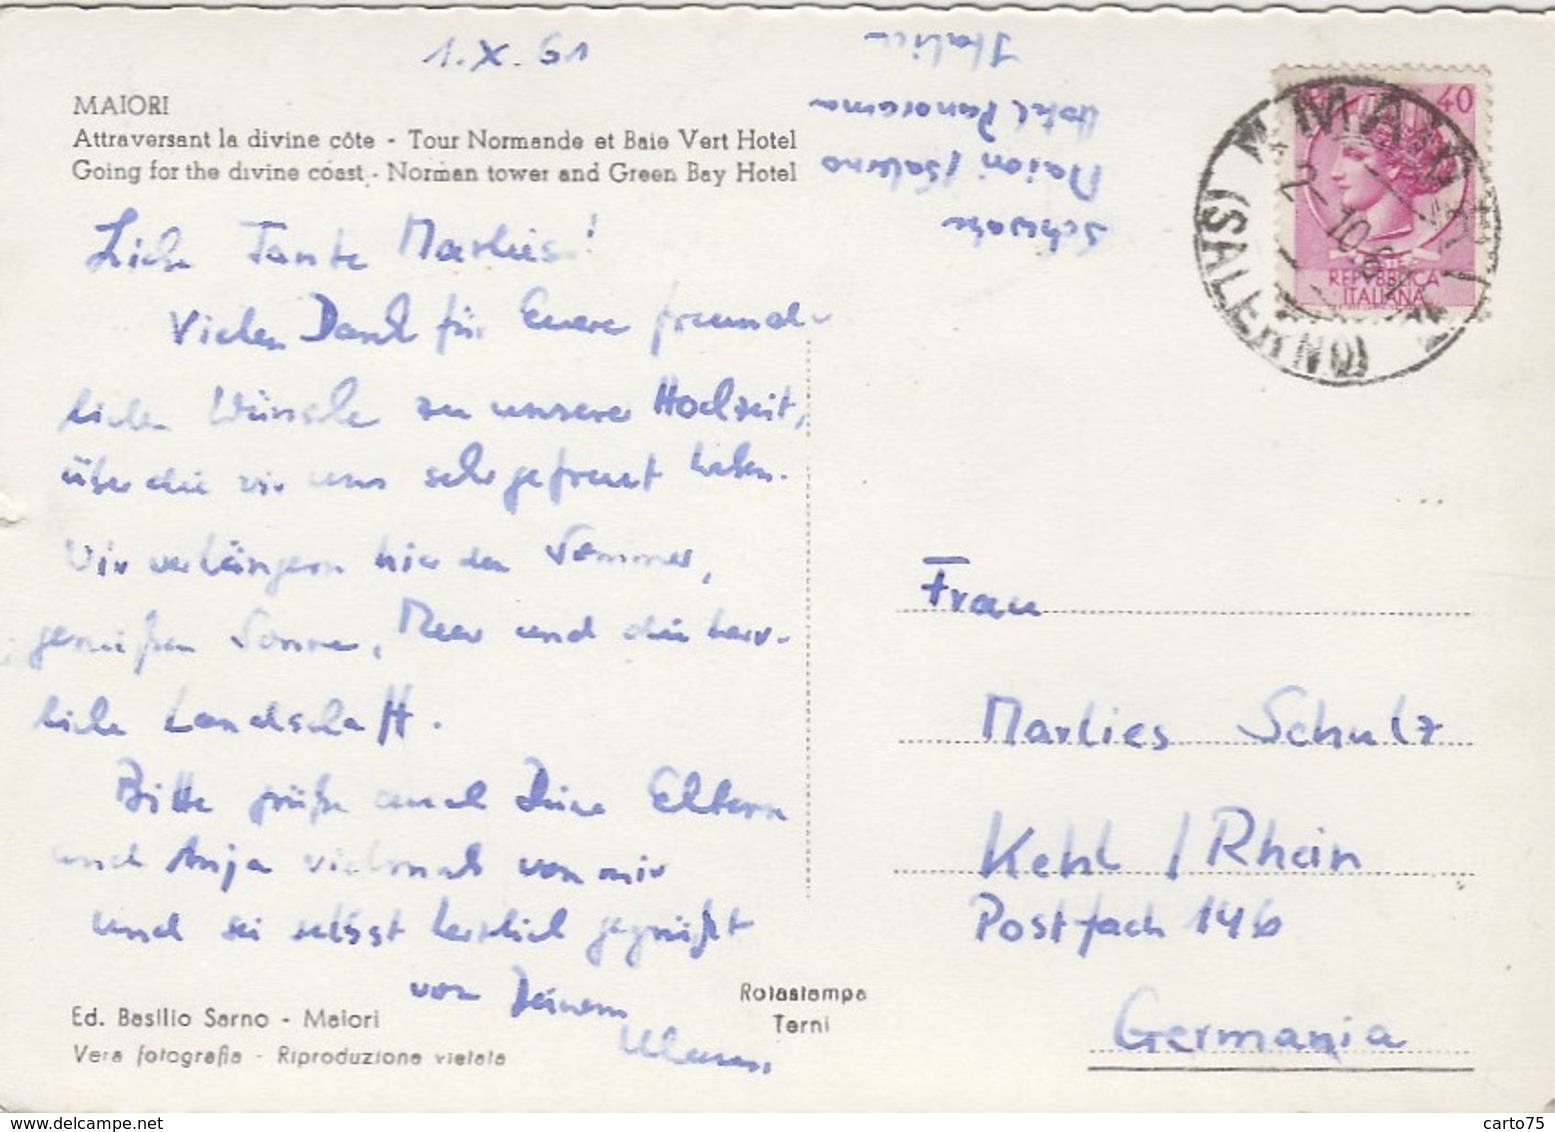 1.X.61
MAIORI
Attraversant la divine côte - Tour Normande et Baie Vert Hotel
Going for the divine coast - Norman tower and Green Bay Hotel
Liebe Tante Marlies!
Vielen Dank für Euere freund-
lichen Wünsche zu unserer Hochzeit,
über die wir uns sehr gefreut haben.
Wir verlängern hier den Sommer,
genießen Sonne, Meer und die herr-
liche Landschaft.
Bitte grüße auch Deine Eltern
und Anja vielmals von mir
und sei selbst herzlich gegrüßt
von Deinem
Ed. Basilio Sarno - Maiori
Vera fotografia - Riproduzione vietata
Rotastampa
Terni
Schwabe
Maiori/Salerno
Hotel Panorama
Italien
40
REPVBBLICA
ITALIANA
MAIORI
2-10.61
(SALERNO)
Frau
Marlies Schulz
Kehl / Rhein
Postfach 146
Germania
carto75